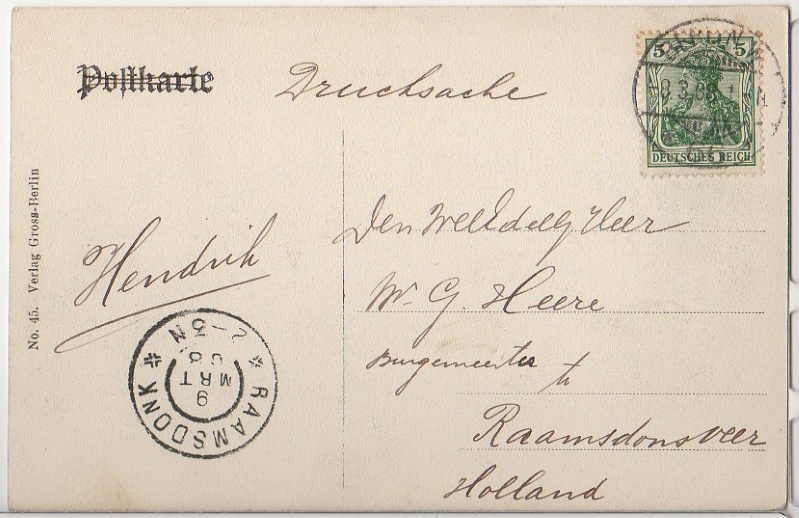 Postkarte
Drucksache
5 5
-8.3.08.
DEUTSCHES REICH
No. 45. Verlag Gross-Berlin
Hendrik
Den WelEdelg Heer
W. G. Heere
Burgemeester te
Raamsdonsveer
Holland
RAAMSDONK
9
MRT
08
2-3N